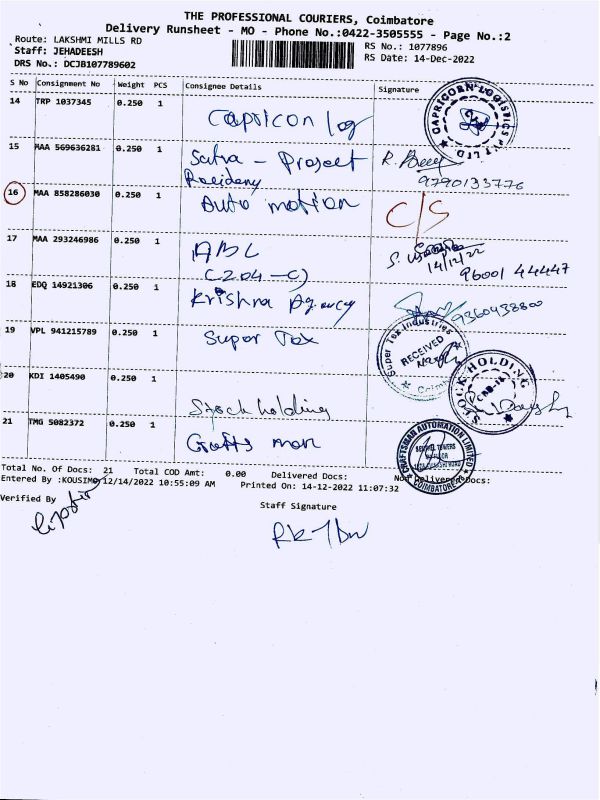 THE PROFESSIONAL COURIERS, Coimbatore
Delivery Runsheet - MO - Phone No.:0422-3505555 - Page No.:2
Route: LAKSHMI MILLS RD
Staff: JEHADEESH
DRS No.: DCJB107789602
RS No.: 1077896
RS Date: 14-Dec-2022
S No Consignment No Weight PCS Consignee Details Signature
14 TRP 1037345 0.250 1 Capricon log
CAPRICORN LOGISTICS PVT LTD
15 MAA 569636281 0.250 1 Satva - Project
Recideny
R.
9790133776
16 MAA 858286030 0.250 1 Auto motion C/S
17 MAA 293246986 0.250 1 ABL
(204-C)
S.
14/12/22
96001 44447
18 EDQ 14921306 0.250 1 Krishna Agency 9360438800
19 VPL 941215789 0.250 1 Super Tex
Super Tex Industries
RECEIVED
20 KDI 1405490 0.250 1 Stock holding
STOCK HOLDING
CBE-18
21 TMG 5082372 0.250 1 Crafts man
CRAFTSMAN AUTOMATION LIMITED
COIMBATORE
Total No. Of Docs: 21 Total COD Amt: 0.00 Delivered Docs: Non Delivered Docs:
Entered By :KOUSIMO 12/14/2022 10:55:09 AM Printed On: 14-12-2022 11:07:32
Verified By
Staff Signature